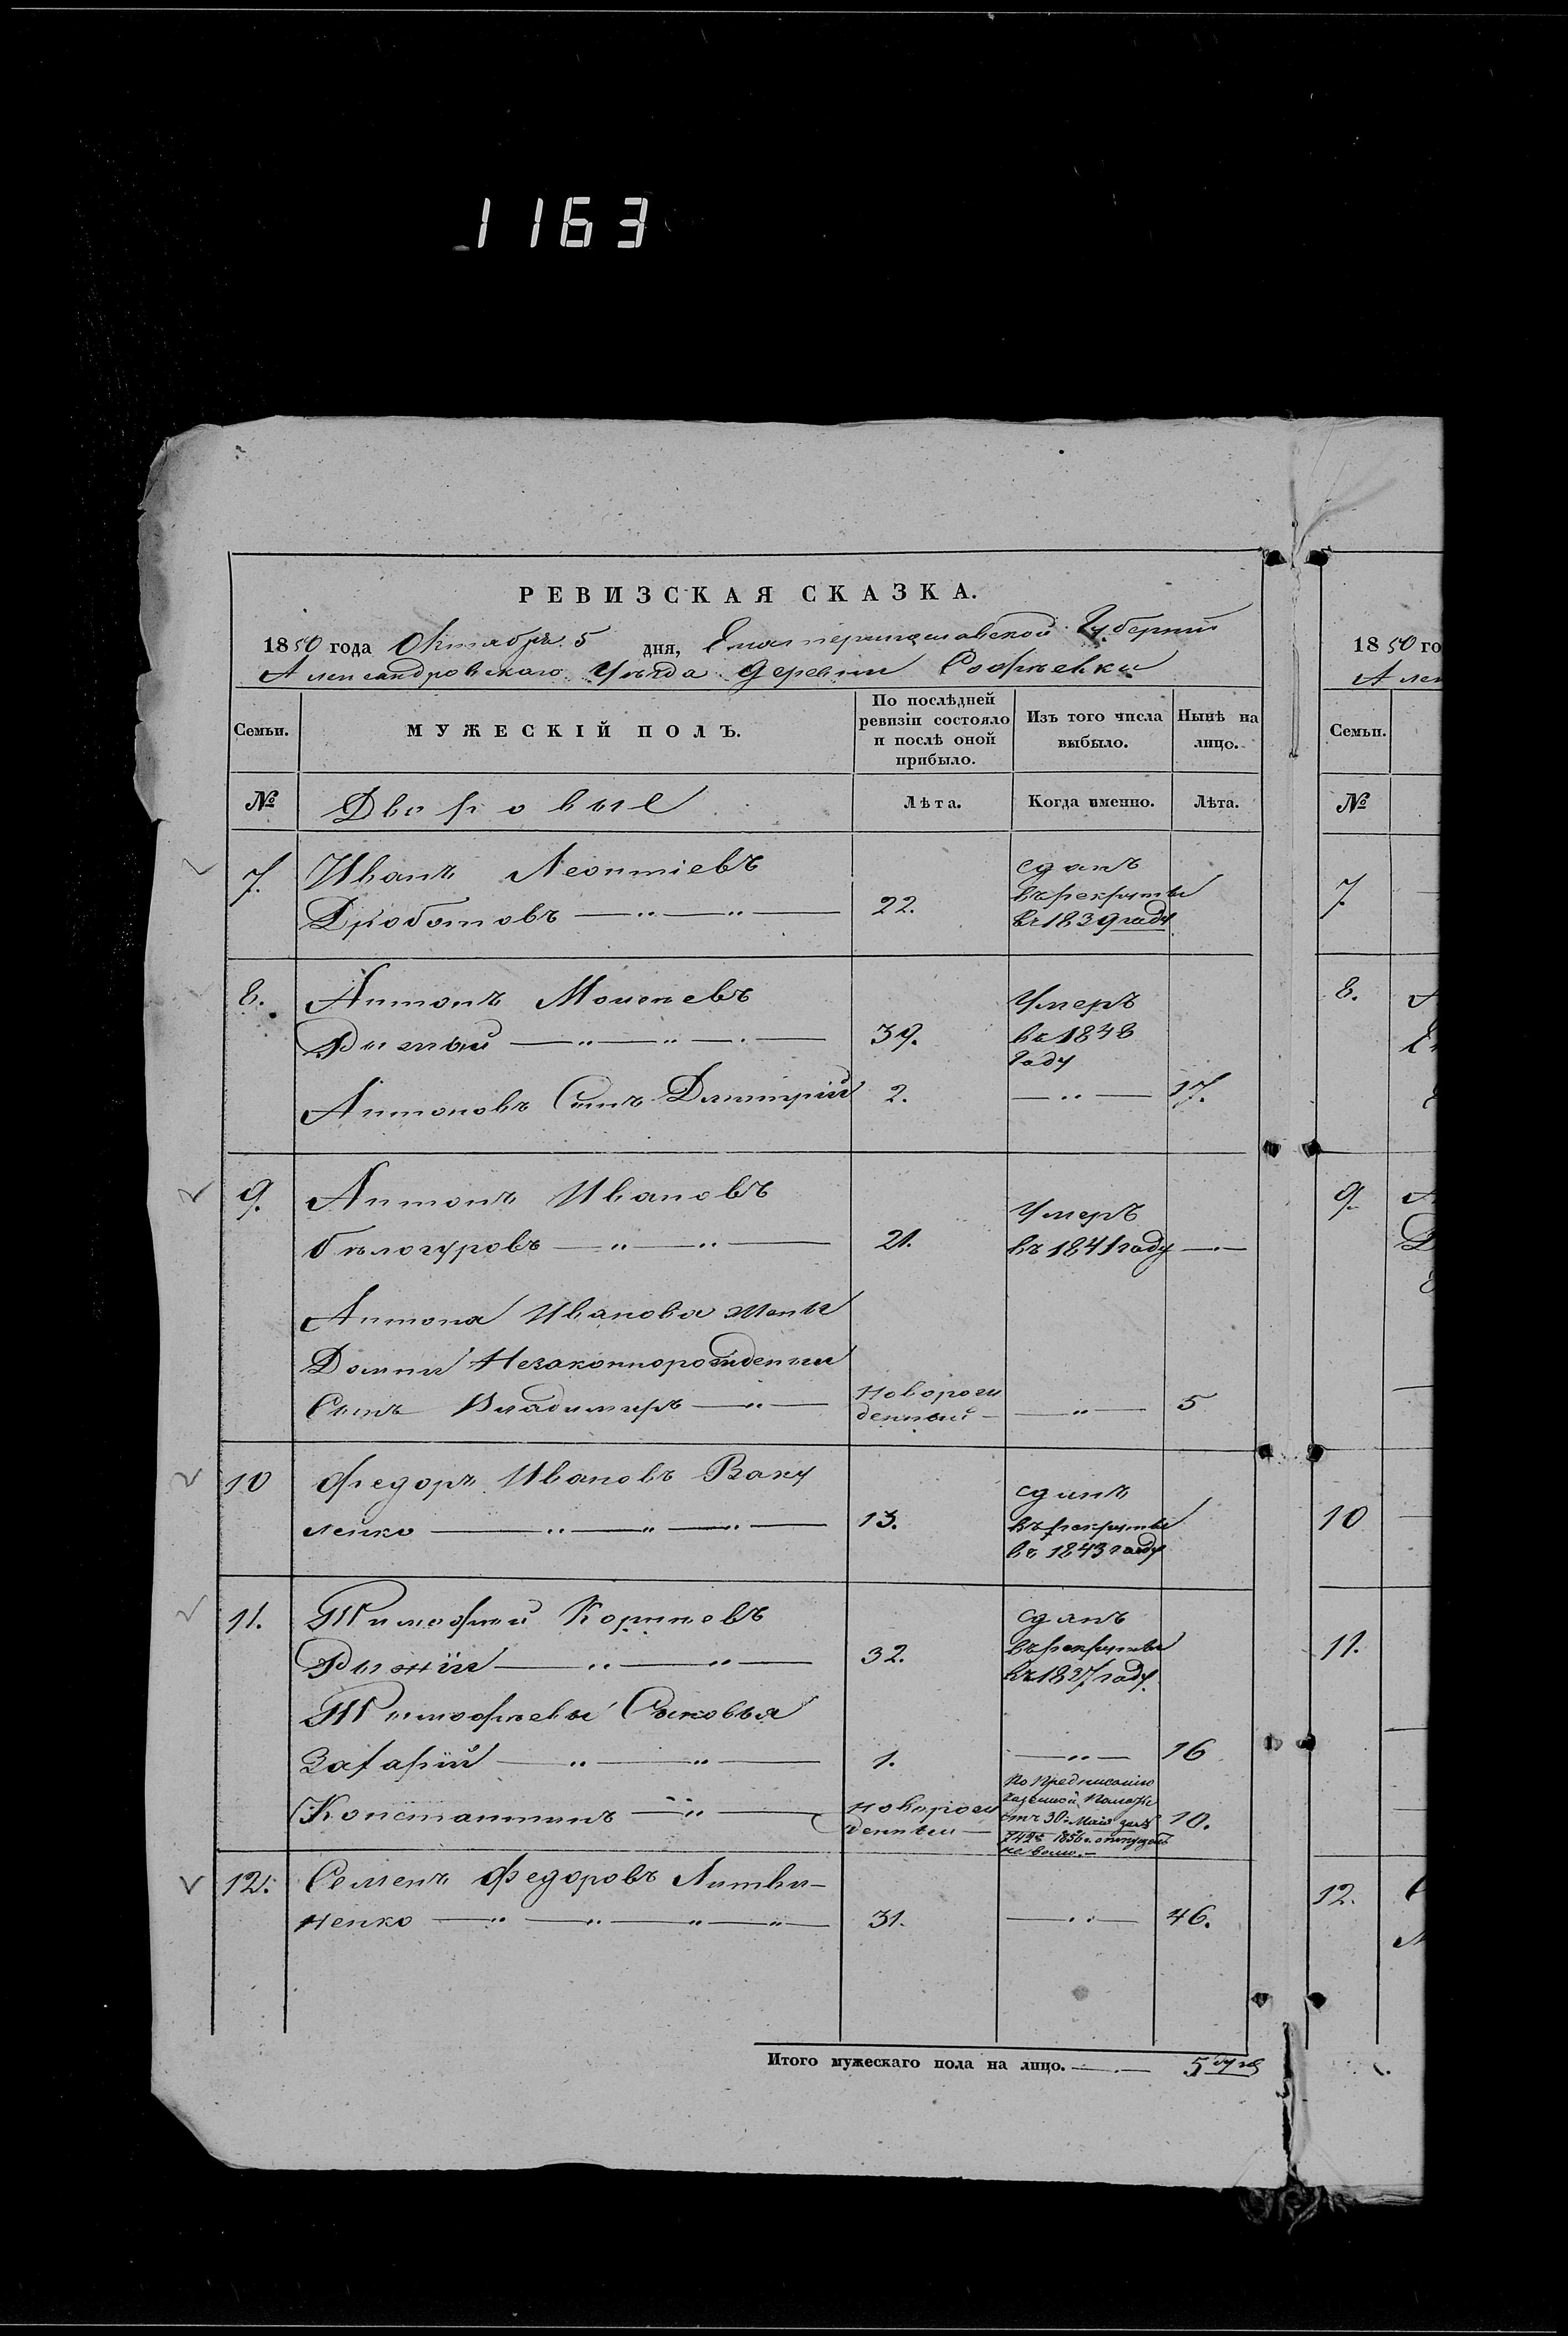 1163
РЕВИЗСКАЯ СКАЗКА.
1850 года Октября 5 дня, Екатеринославской Губерніи
Александровскаго Уѣзда Деревни Софіевки
Семьи.
МУЖЕСКІЙ ПОЛЪ.
По послѣдней ревизіи состояло и послѣ оной прибыло.
Изъ того числа выбыло.
Нынѣ на лицо.
№
Дворовые
Лѣта.
Когда именно.
Лѣта.
7. Иванъ Леонтіевъ
Дроботовъ — " — " — 22. сданъ въ рекруты въ 1839 году
8. Антонъ Моисеевъ
Рыжый — " — " — 39. Умеръ въ 1848 году
Антоновъ Сынъ Дмитрій 2. — " — 17.
9. Антонъ Ивановъ
бѣлогуровъ — " — " — 21. Умеръ въ 1841 году —"—
Антона Иванова жены
Домны Незаконнорожденный
Сынъ Владимиръ — " — Новорожденный — — " — 5
10 Федоръ Ивановъ Ваку
ленко — " — " — " — 13. сданъ въ рекруты въ 1843 году
11. Тимофей Корнѣевъ
Рыжій — " — " — 32. сданъ въ рекруты въ 1837 году
Тимофѣевы Сыновья
Захарій — " — " — 1. — " — 16
Константинъ — " — Новорожденный — По Предписанію Казенной Палаты отъ 30 Мая за № 7428 1856 г. отпущенъ на волю. — 10.
12. Семенъ Федоровъ Литви-
ненко — " — " — " — " — 31. — " — 46.
Итого мужескаго пола на лицо. — 5
1850 го
Алек
Семьи.
№
7.
8.
9.
10
11.
12.